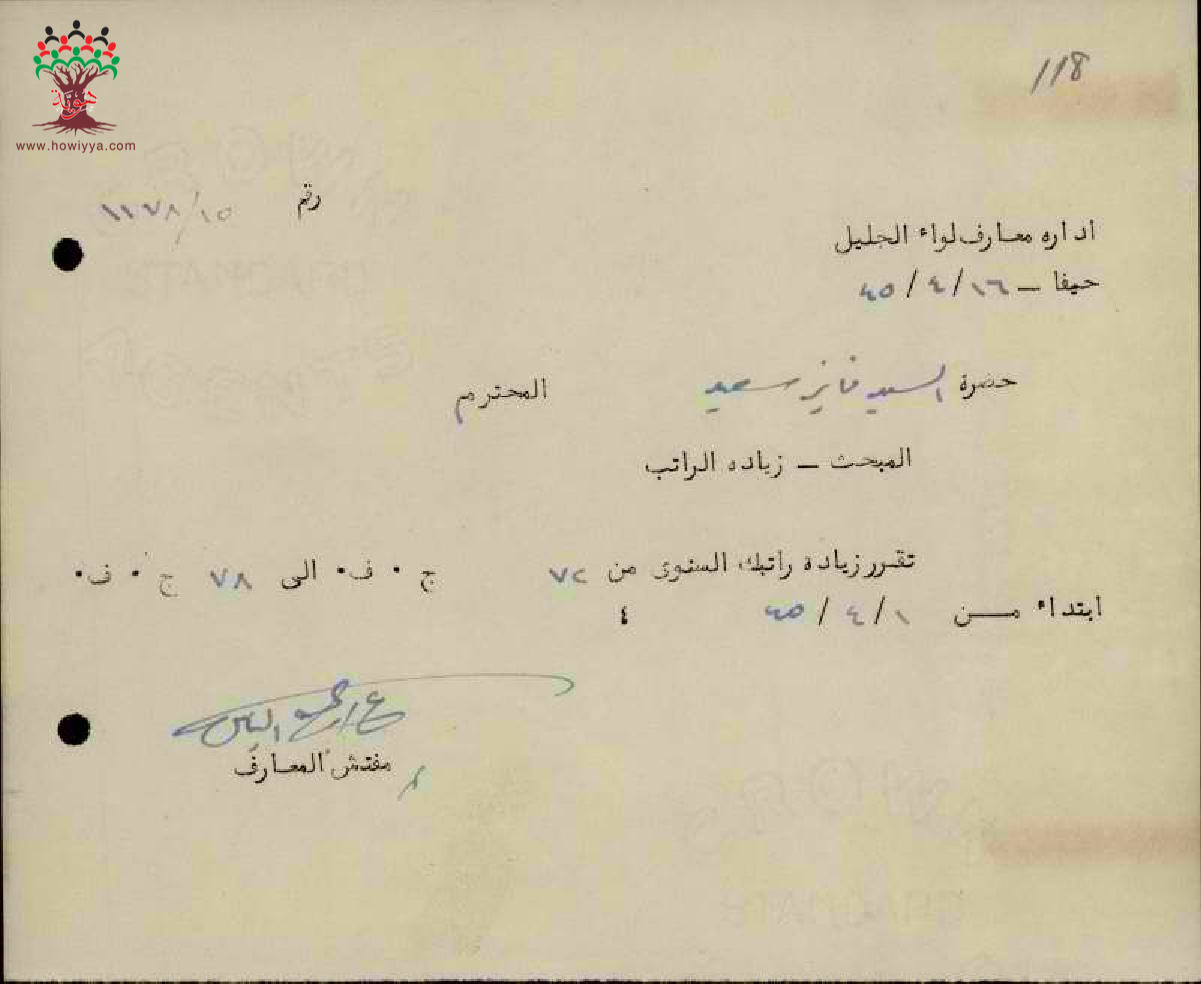 هوية
www.howiyya.com
118
رقم ١١٧٨/١٥
اداره معارف لواء الجليل
حيفا - ١٦/٤/٤٥
حضرة السيد فايز سعيد المحترم
المبحث - زياده الراتب
تقرر زياده راتبك السنوى من ٧٢ ج ٠ ف٠ الى ٧٨ ج ٠ ف٠
ابتداء من ١/٤/٤٥ ٤
مفتش المعارف